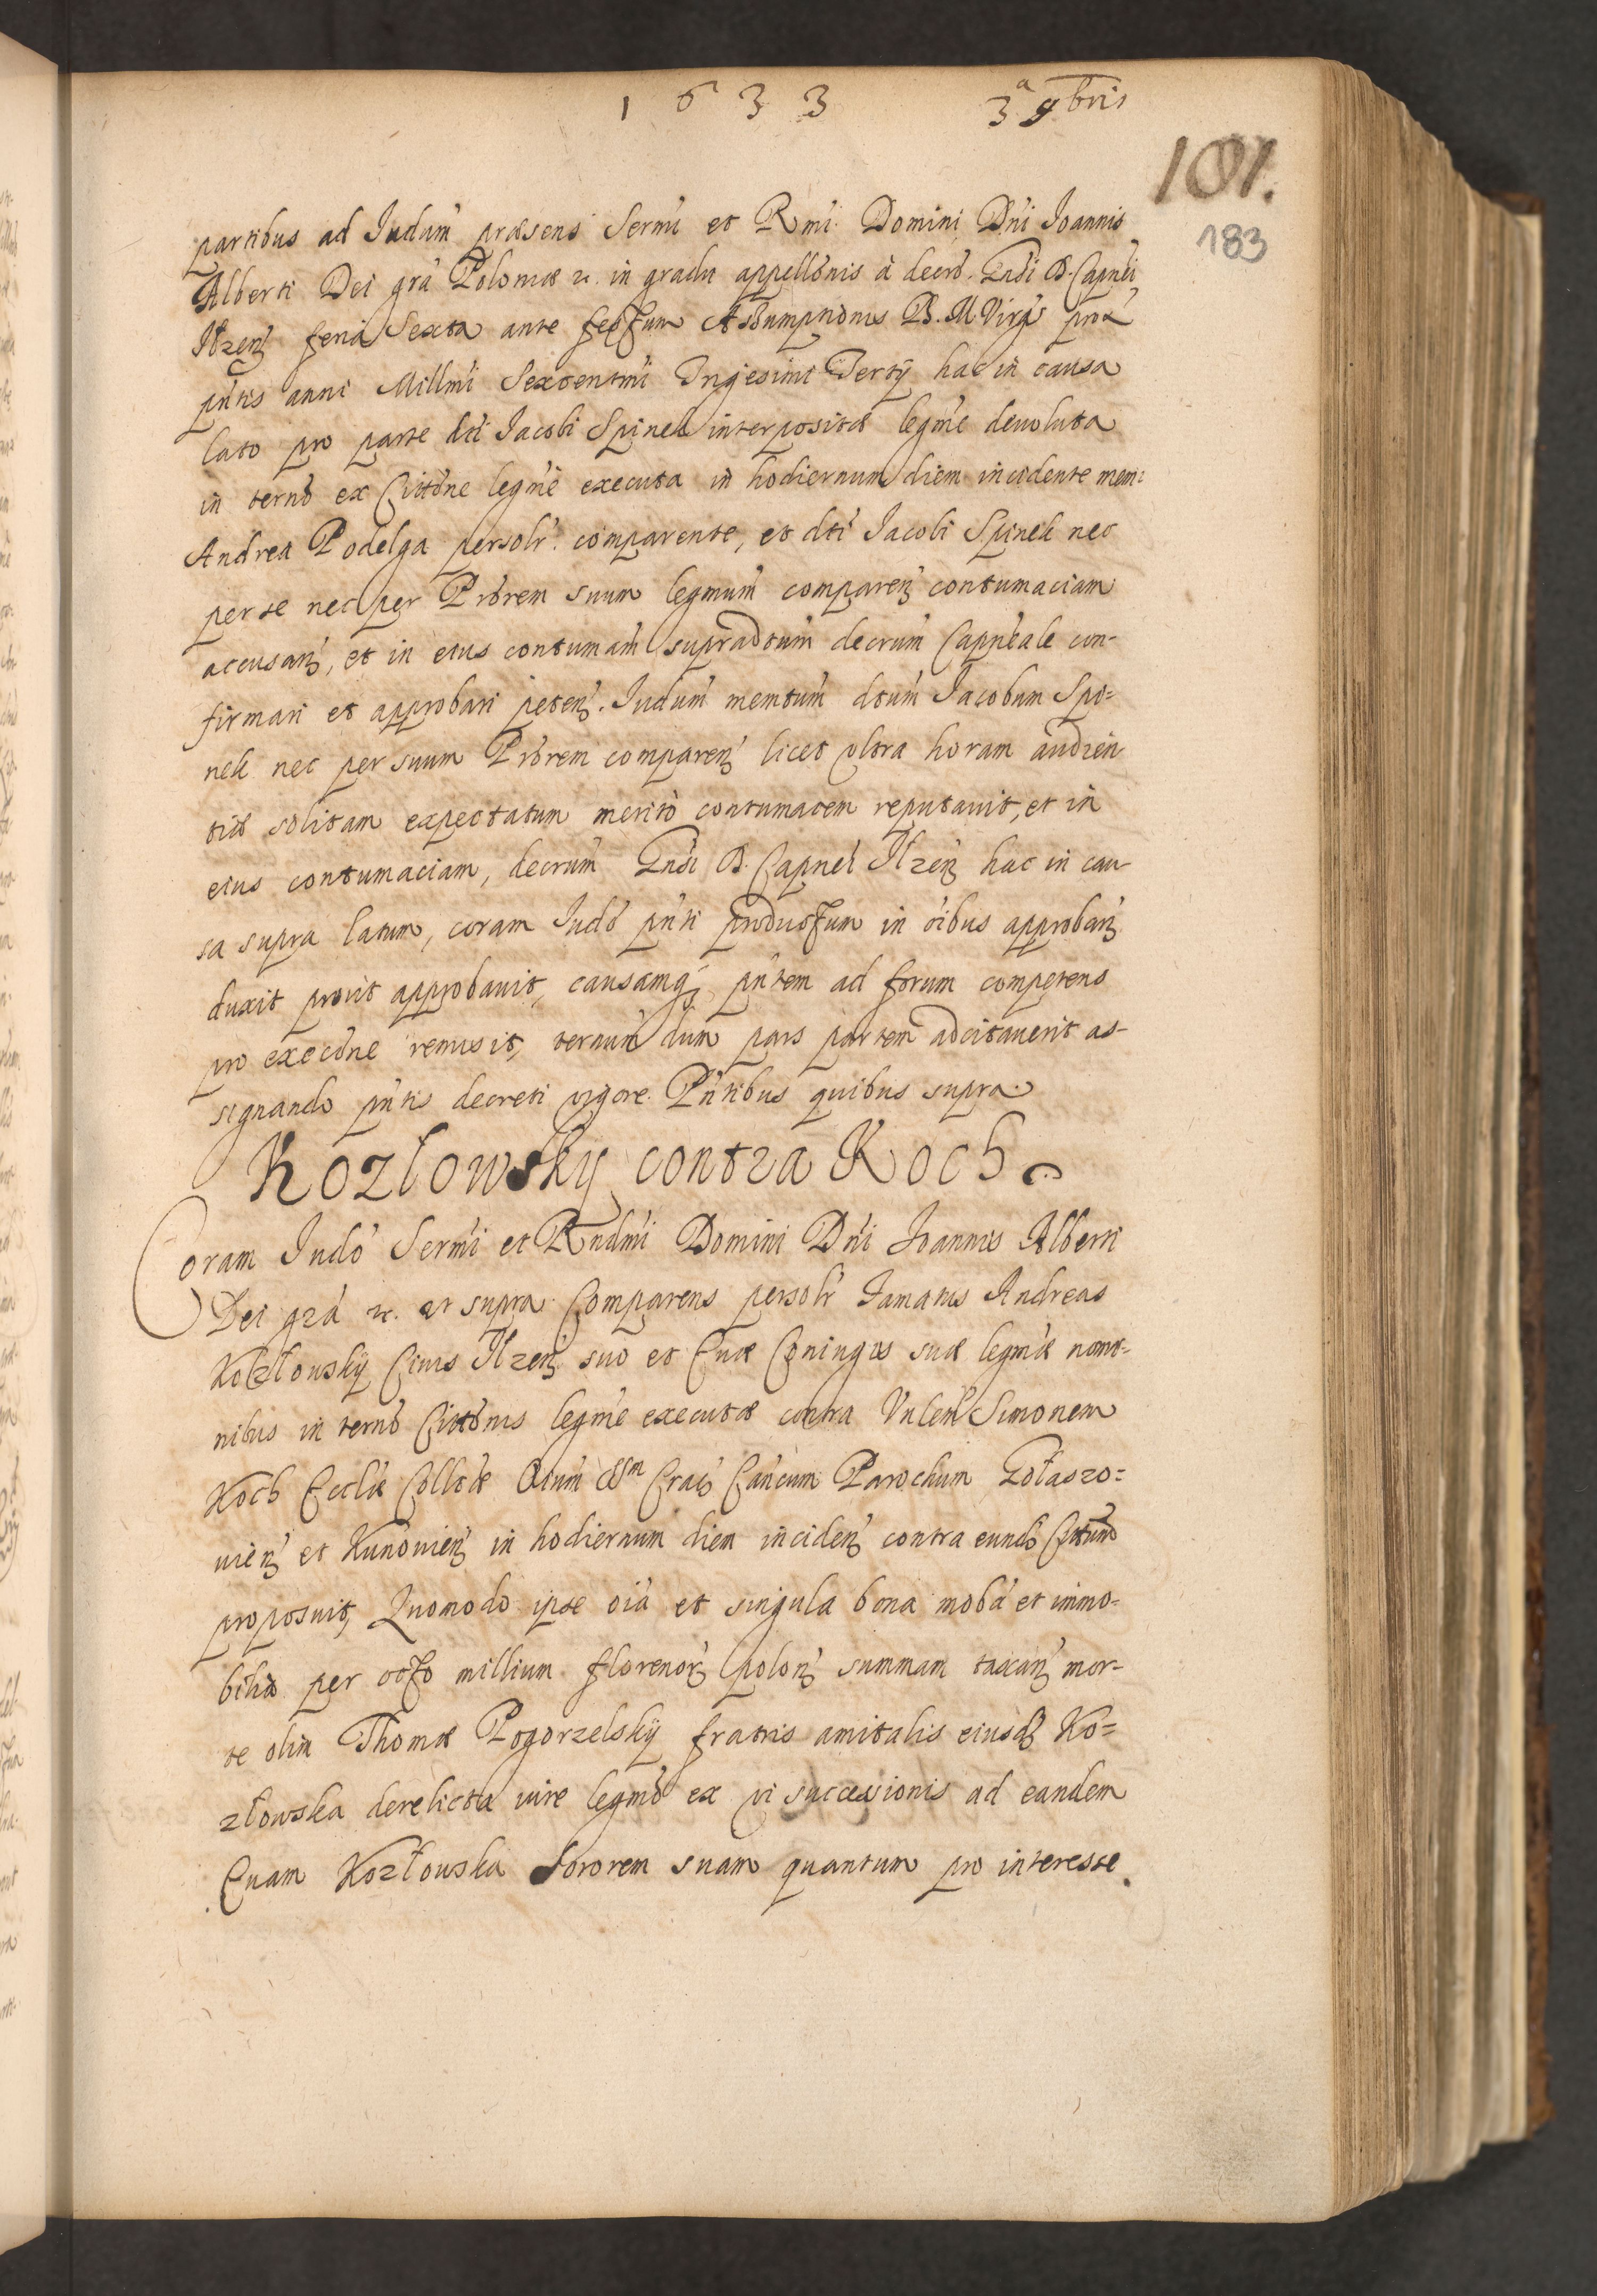 1633 3ª 9bris
101.
183
partibus ad Iudum̃ præsens Sermi et Rmi Domini Dni Ioannis
Alberti Dei gra Poloniæ &c. in gradu appellonis à decro Gnsi D. Capnei
Ilzen feria Sexta ante festum Assumptionis B. M. Virg prox
pntis anni Millmi Sexcentmi Trigesimi Tertij hac in causa
lato pro parte dti Iacobi Spinek interpositæ legme deuoluta
in terno ex Cittone legme executa in hodiernum diem incidente mem:
Andrea Podelga persolr comparente, et dti Iacobi Spinek nec
per se nec per Prorem suum legmum comparen contumaciam
accusan, et in eius contumam supradtum decrum Capneale con-
firmari et approbari peten. Iudum memtum dtum Iacobum Spi=
nek nec per suum Prorem comparen licet vltra horam audien
tiæ solitam expectatum meritò contumacem reputauit, et in
eius contumaciam, decrum Gnsi D. Capnei Ilzen hac in cau
sa supra latum, coram Iudo pnti productum in oibus approban
duxit prout approbauit, causamq; pntem ad forum competens
pro execone remisit, ternum dum pars partem adcitauerit as-
signando pntis decreti vigore. Pntibus quibus supra.
Kozlowsky contra Koch
Coram Iudo Sermi et Rndmi Domini Dni Ioannis Alberti
Dei gra &c. vt supra Comparens persolr Famatus Andreas
Kozłouskÿ Ciuis Ilzen suo et Euæ Coniugis suæ legmæ nomi-
nibus in terno Cittonis legme executæ contra Vnlem Simonem
Koch Eccliæ Colltæ Oium SSm Crac Cancum Parochum Gołaszo=
uien et Kunouien in hodiernum diem inciden contra eund Cittum
proposuit, Quomodo ipse oia et singula bona moba et immo-
bilia per octo millium florenor polon summam taxan mor-
te olim Thomæ Pogorzelskÿ fratris amitalis eiusd Ko=
złouska derelicta iure legmo ex vi successionis ad eandem
Euam Kozłouska Sororem suam quantum pro interesse